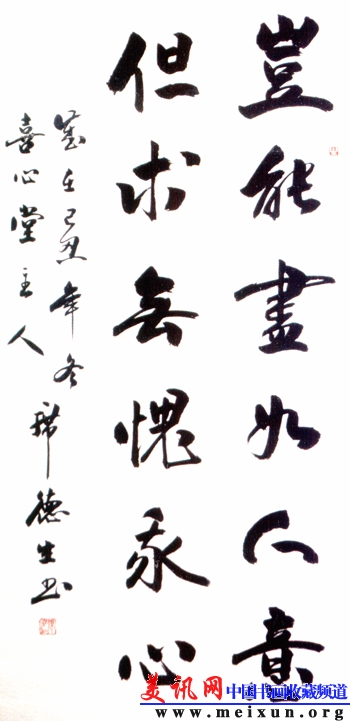 豈能盡如人意
但求無愧我心
歲在己丑年冬 席德生书
喜心堂主人
美讯网 中国书画收藏频道
www.meixun.org